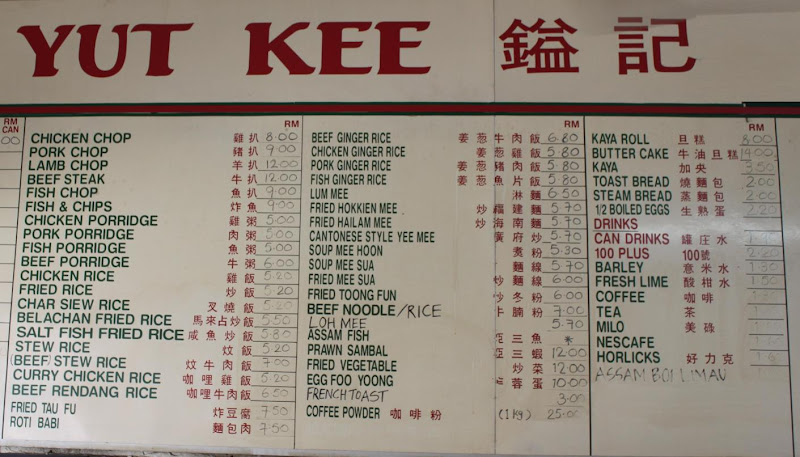 YUT KEE 鎰記
RM
CAN
00
CHICKEN CHOP 雞扒 8.00
PORK CHOP 豬扒 9.00
LAMB CHOP 羊扒 12.00
BEEF STEAK 牛扒 12.00
FISH CHOP 魚扒 9.00
FISH & CHIPS 炸魚 9.00
CHICKEN PORRIDGE 雞粥 5.00
PORK PORRIDGE 肉粥 5.00
FISH PORRIDGE 魚粥 5.00
BEEF PORRIDGE 牛粥 6.00
CHICKEN RICE 雞飯 5.20
FRIED RICE 炒飯 5.20
CHAR SIEW RICE 叉燒飯 5.20
BELACHAN FRIED RICE 馬來占炒飯 5.50
SALT FISH FRIED RICE 咸魚炒飯 5.80
STEW RICE 炆飯 5.20
(BEEF) STEW RICE 炆牛肉飯 7.00
CURRY CHICKEN RICE 咖哩雞飯 5.20
BEEF RENDANG RICE 咖哩牛肉飯 6.50
FRIED TAU FU 炸豆腐 7.50
ROTI BABI 麵包肉 7.50
RM
BEEF GINGER RICE 姜葱牛肉飯 6.80
CHICKEN GINGER RICE 姜葱雞飯 5.80
PORK GINGER RICE 姜葱豬肉飯 5.80
FISH GINGER RICE 姜葱魚片飯 5.80
LUM MEE 淋麵 6.50
FRIED HOKKIEN MEE 炒福建麵 5.70
FRIED HAILAM MEE 炒海南麵 5.70
CANTONESE STYLE YEE MEE 廣府炒 5.70
SOUP MEE HOON 煮粉 5.30
SOUP MEE SUA 麵線 5.70
FRIED MEE SUA 炒麵線 6.00
FRIED TOONG FUN 炒冬粉 6.00
BEEF NOODLE/RICE 牛腩粉 7.00
LOH MEE 5.70
ASSAM FISH 亞三魚 *
PRAWN SAMBAL 亞三蝦 12.00
FRIED VEGETABLE 炒菜 12.00
EGG FOO YOONG 芙蓉蛋 10.00
FRENCH TOAST 3.00
COFFEE POWDER 咖啡粉 (1kg) 25.00
RM
KAYA ROLL 旦糕 8.00
BUTTER CAKE 牛油旦糕 14.00
KAYA 加央 3.50
TOAST BREAD 燒麵包 2.00
STEAM BREAD 蒸麵包 2.00
1/2 BOILED EGGS 生熟蛋 2.20
DRINKS
CAN DRINKS 罐庄水
100 PLUS 100號 2.20
BARLEY 意米水
FRESH LIME 酸柑水
COFFEE 咖啡
TEA 茶
MILO 美碌
NESCAFE
HORLICKS 好力克
ASSAM BOI LIMAU